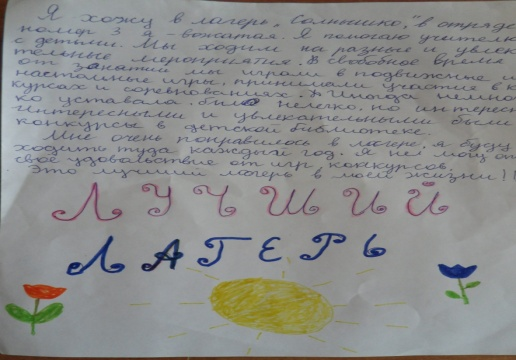 Я хожу в лагерь „Солнышко," в отряде
номер 3 я - вожатая. Я помогаю учителю
с детьми. Мы ходим на разные и увлек
тельные мероприятия. В свободное время
от занятий мы играли в подвижные и
настольные игры, принимали участия в кон
курсах и соревнованиях. Я иногда немно
ко уставала. было нелегко, но интерес
Интересными и увлекательными были
конкурсы в детской библиотеке.
Мне очень понравилось в лагере, я буду
ходить туда каждый год. Я не могу оп
своё удовольствие от игр, конкурсов,
Это лучший лагерь в моей жизни!!
ЛУЧШИЙ
ЛАГЕРЬ